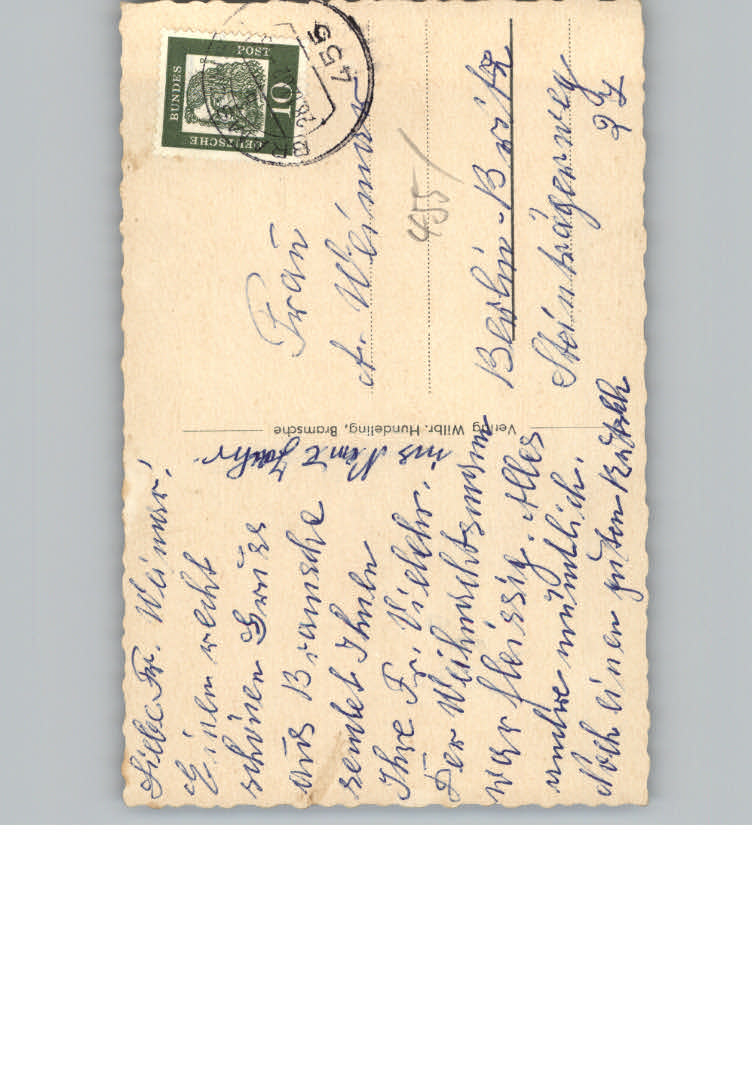 Liebe Fr. Weimar!
Einen recht
schönen Gruss
aus Bramsche
sendet Ihnen
Ihre Fr. 
Der Weihnachtsmann
war fleissig. Alles
andre mündlich.
Noch einen guten Rutsch
ins Neue Jahr.
Verlag Wilbr. Hundeling, Bramsche
DEUTSCHE
BUNDES
POST
10
455
Frau
A. Weimar
455
Berlin-Britz
Steinträgerweg